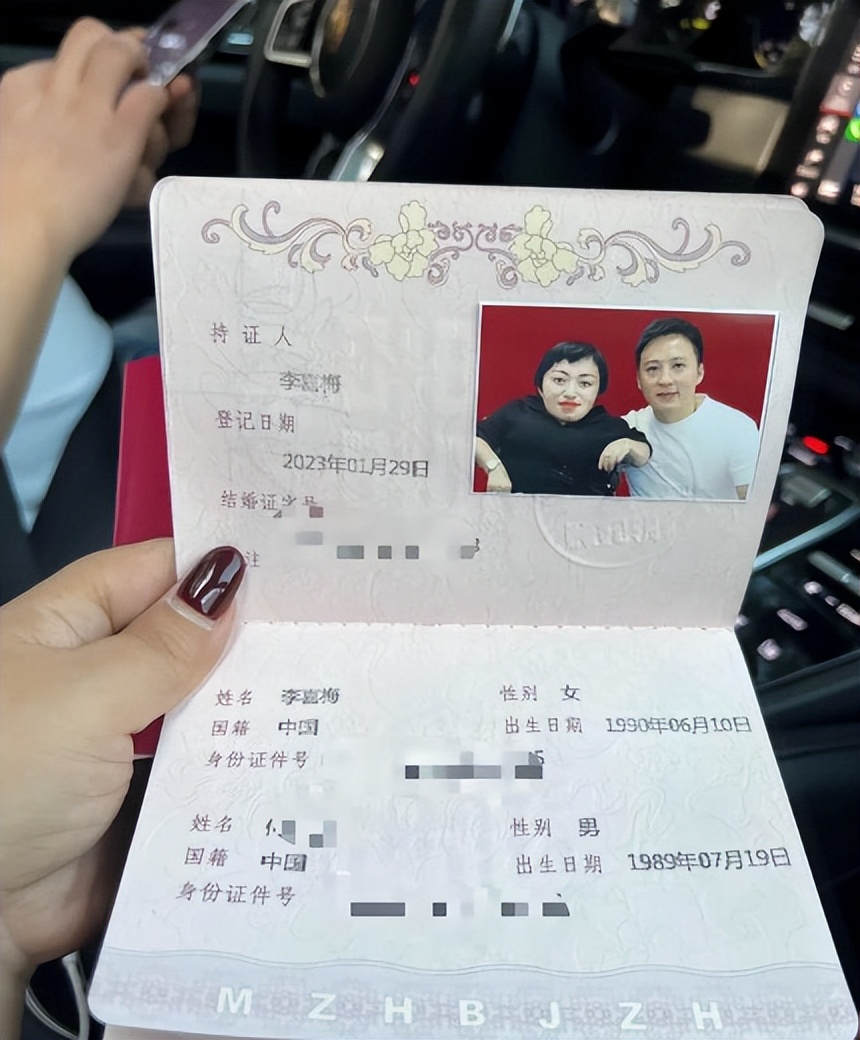 持证人
李喜梅
登记日期
2023年01月29日
结婚证字号
注
姓名 李喜梅 性别 女
国籍 中国 出生日期 1990年06月10日
身份证件号
姓名 性别 男
国籍 中国 出生日期 1989年07月19日
身份证件号
M Z H B J Z H